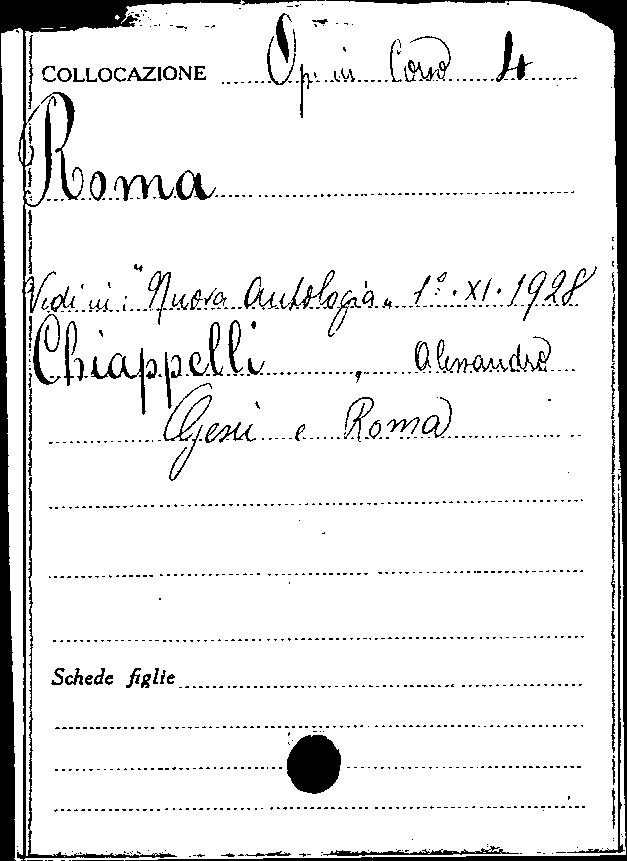 COLLOCAZIONE Op. in Corso 4
Roma
Vedi in: "Nuova Antologia" 1º. XI. 1928
Chiappelli, Alessandro
Gesù e Roma
Schede figlie